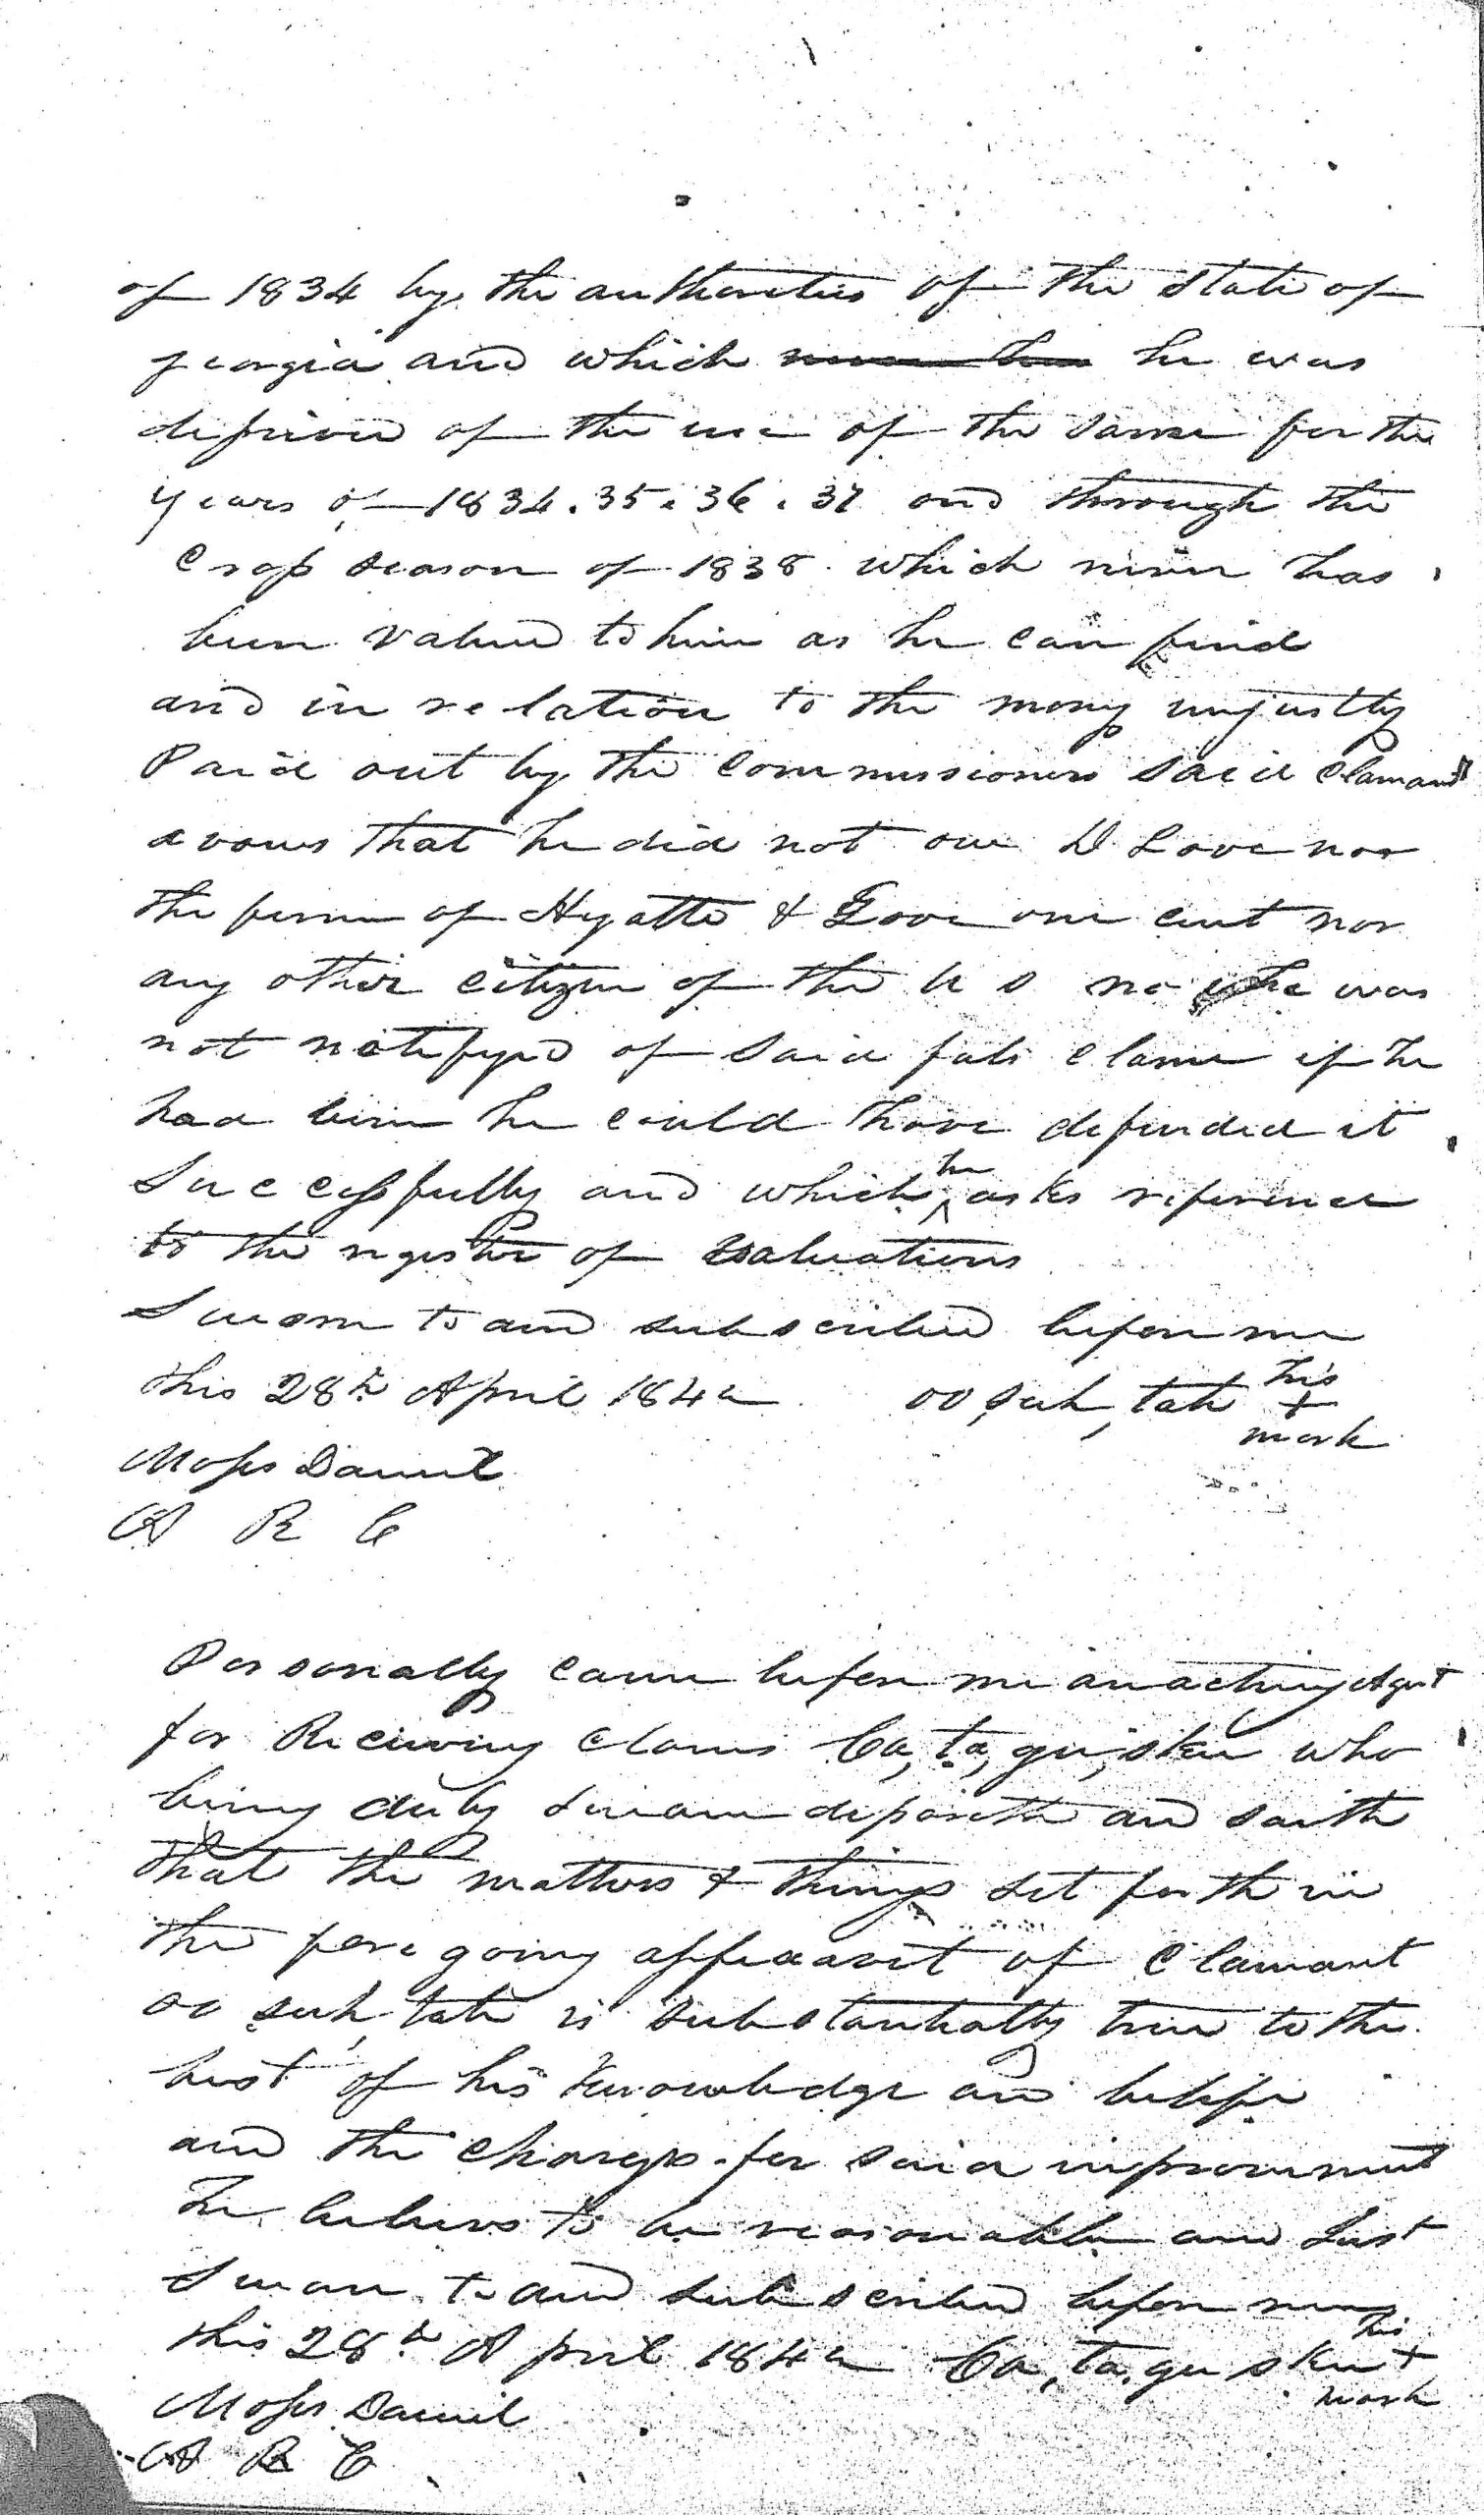 of 1834 by the authorities of the State of
georgia and which he was
deprived of the use of the same for the
years of 1834. 35. 36. 37 and through the
Crop season of 1838 which never has
been valued to him as he can find
and in relation to the mony unjustly
Paid out by the Commissioners said Clamant
avows that he did not owe D Love nor
the firm of Hyatte & Love one cent nor
any other citizen of the U S he was
not notifyed of said fals clame if he
had been he could have defended it
Successfully and which he asks referance
to the register of valuations
Sworn to and subscribed before me
this 28th April 1842 oo, suh, tah his
+
mark
Moses Daniel
A R C
Personally came before me an acting Agent
for Receiving Clams Ca, ta, gu, skee who
being duly sworn deposeth and saith
that the matters & things set forth in
the fore going affidavit of Clamant
oo suh, tah is substantially true to the
best of his knowledge and belief
and the charges for said improvement
he believes to be reasonable and Just
Sworn to and subscribed before me
this 28th April 1842 Ca, ta, gu skee his
+
mark
Moses Daniel
A R C